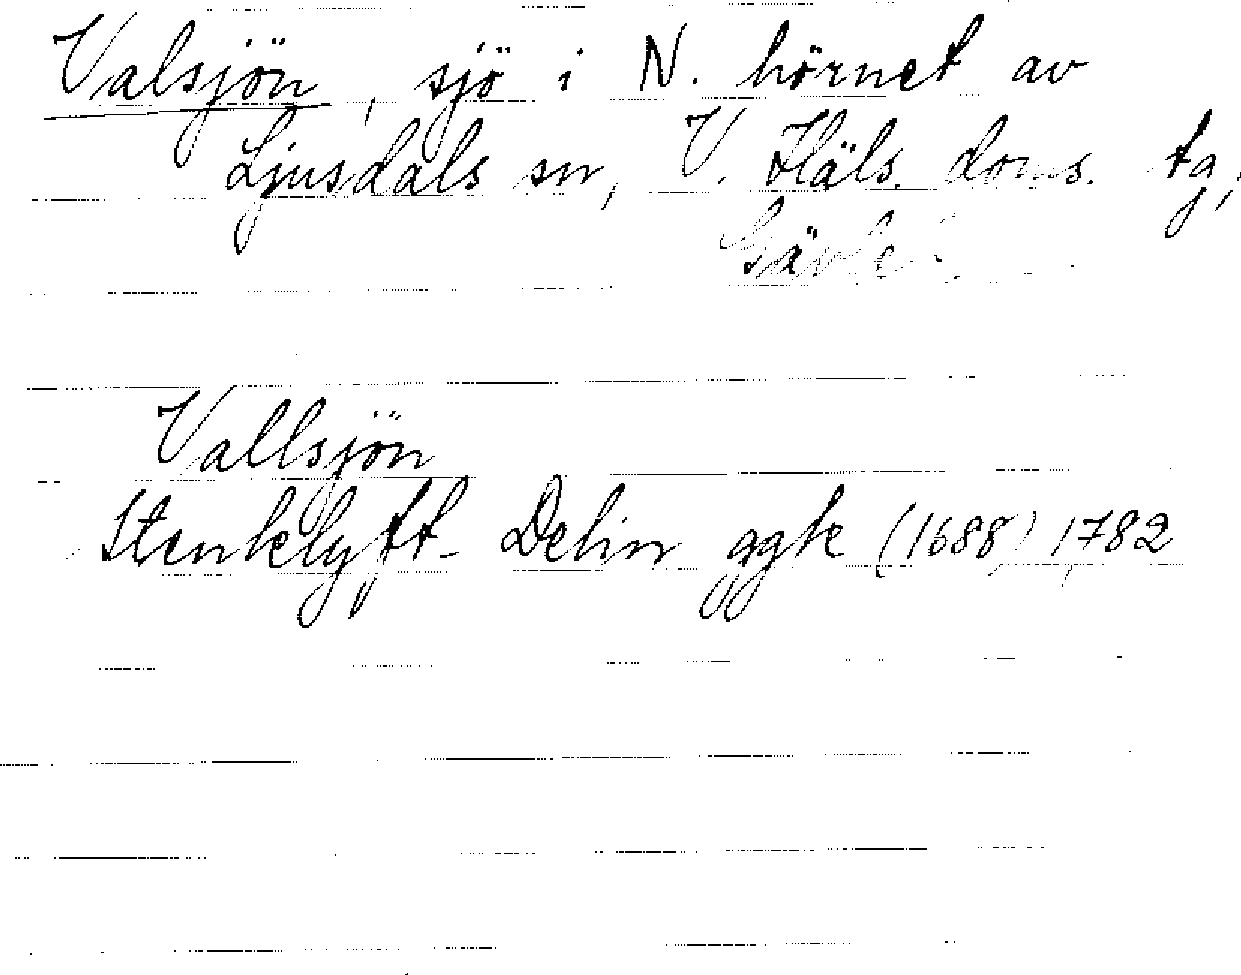 Valsjön, sjö i N. hörnet av
Ljusdals sn, V. Häls. doms. tg,
Gävle
Vallsjön
Stenklyft- Delin ggk (1688) 1782